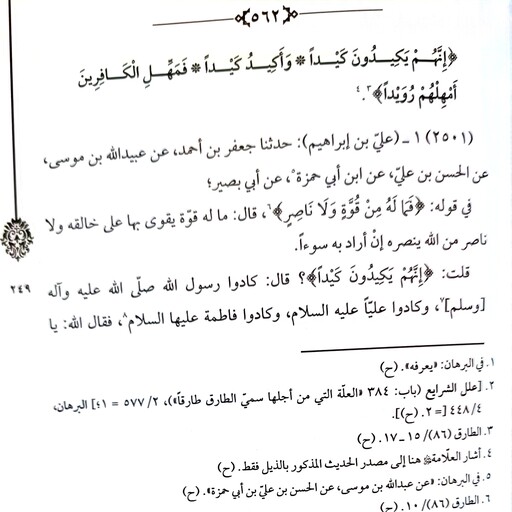 ٥٦٢
﴿إِنَّهُمْ يَكِيدُونَ كَيْداً * وَأَكِيدُ كَيْداً * فَمَهِّلِ الْكَافِرِينَ
أَمْهِلْهُمْ رُوَيْداً﴾٣.٤
(٢٥٠١) ١ ـ (عليّ بن إبراهيم): حدثنا جعفر بن أحمد، عن عبيدالله بن موسى،
عن الحسن بن عليّ، عن ابن أبي حمزة٥، عن أبي بصير؛
في قوله: ﴿فَمَا لَهُ مِنْ قُوَّةٍ وَلَا نَاصِرٍ﴾٦، قال: ما له قوّة يقوى بها على خالقه ولا
ناصر من الله ينصره إنْ أراد به سوءاً.
قلت: ﴿إِنَّهُمْ يَكِيدُونَ كَيْداً﴾؟ قال: كادوا رسول الله صلّى الله عليه وآله
٢٤٩
[وسلم]٧، وكادوا عليّاً عليه السلام، وكادوا فاطمة عليها السلام٨، فقال الله: يا
١. في البرهان: «يعرفه». (ح)
٢. [علل الشرايع (باب: ٣٨٤ «العلّة التي من أجلها سميّ الطارق طارقاً»)، ٢/ ٥٧٧ = ١؛] البرهان،
٤/ ٤٤٨ [= ٢. (ح)].
٣. الطارق (٨٦)/ ١٥ ـ ١٧. (ح)
٤. أشار العلّامة هنا إلى مصدر الحديث المذكور بالذيل فقط. (ح)
٥. في البرهان: «عن عبدالله بن موسى، عن الحسن بن عليّ بن أبي حمزة». (ح)
٦. الطارق (٨٦)/ ١٠. (ح)